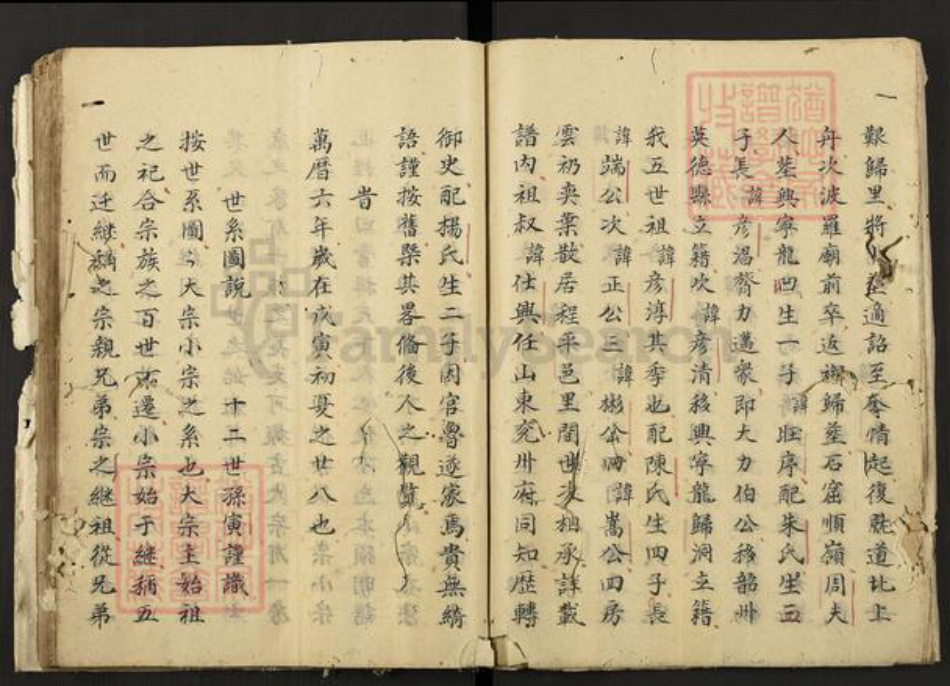 艱歸里將𦵏適詔至奪情起復脫道北上
舟次波羅廟前卒返櫬歸塟石窟順嶺周夫
人塟興寧龍凹生一子諱旺序配朱氏生三
子長諱彥焻膂力邁衆即大力伯公移韶州
英德縣立籍次諱彥清移興寧龍歸洞立籍
我五世祖諱彥淳其季也配陳氏生四子長
諱端公次諱正公三諱彬公四諱嵩公四房
雲礽奕葉散居程平邑里間世次相承詳載
譜內祖叔諱仕興任山東兗州府同知歷轉
御史配楊氏生二子因官魯遂家焉貴無繡
語謹按舊槩其畧俻後人之觀覽
旹
萬曆六年歲在戊寅初夏之廿八也
世系圖說 十二世孫寅謹識
按世系圖今大宗小宗之系也大宗主始祖
之祀合宗族之百世不遷小宗始于継稱五
世而迁継稱之宗親兄弟宗之継祖從兄弟
FamilySearch